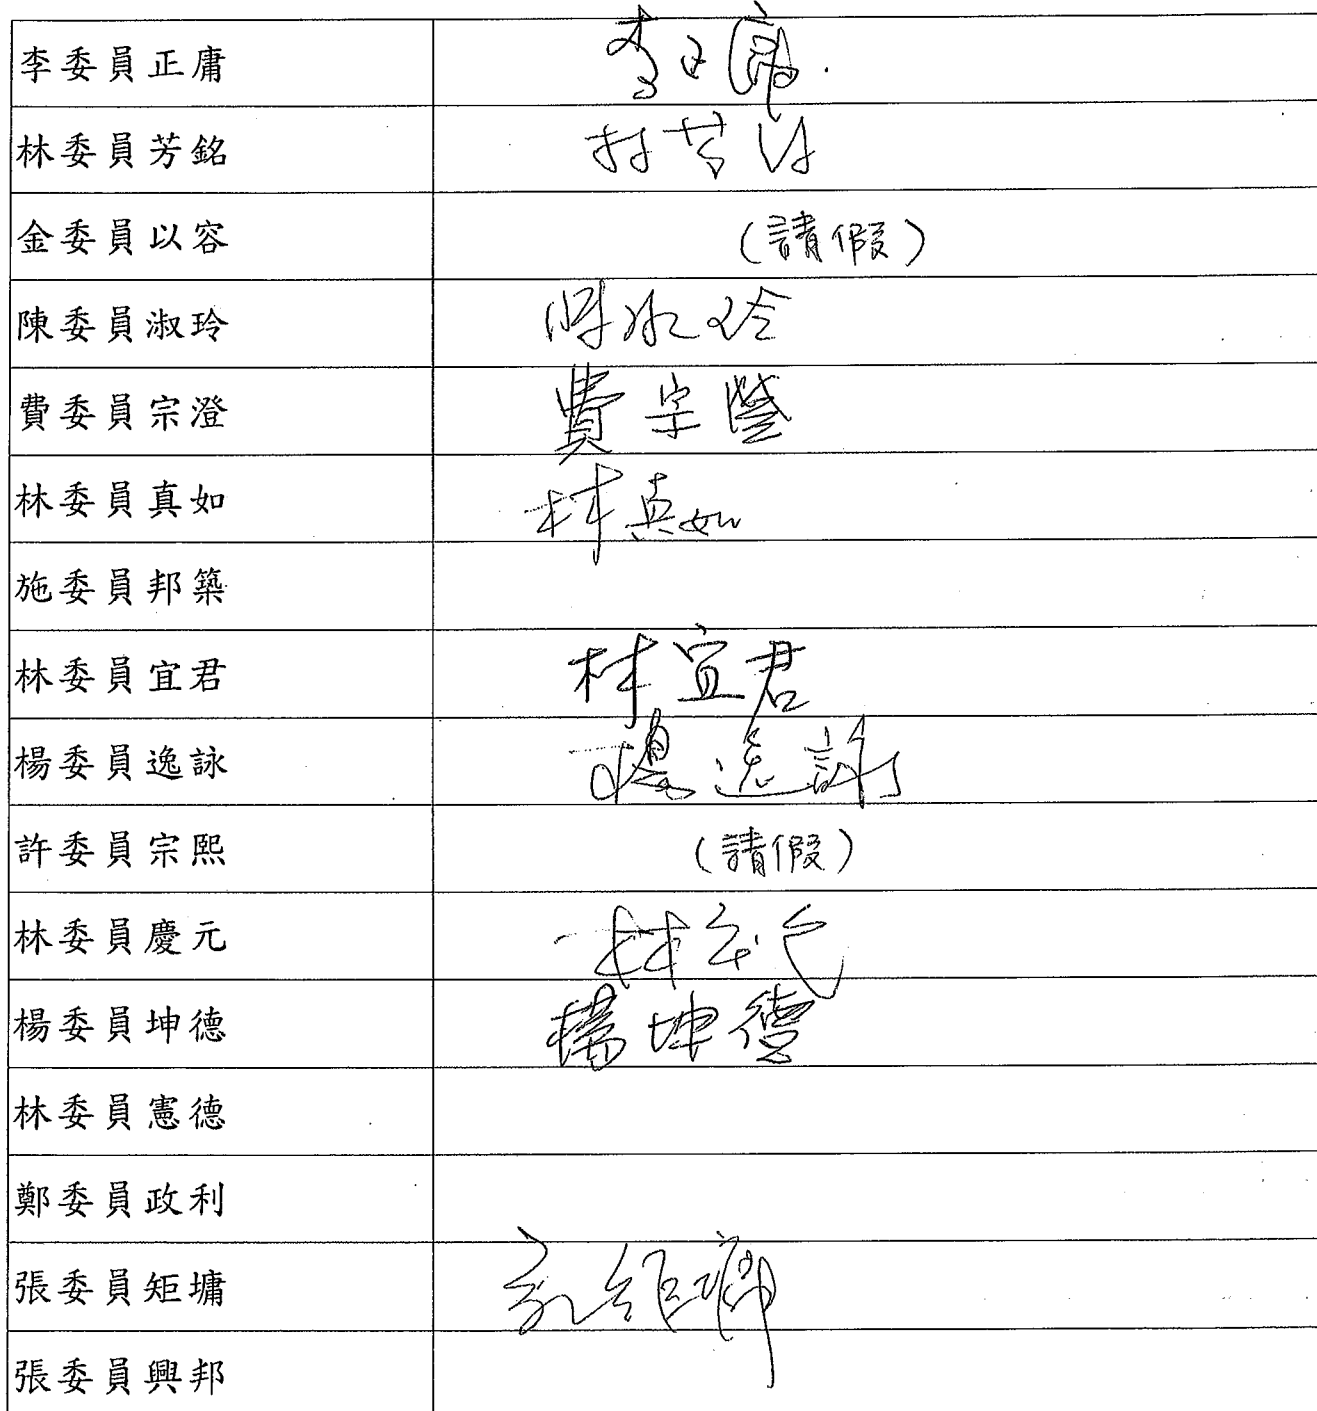 李委員正庸 李正庸
林委員芳銘 林芳銘
金委員以容 (請假)
陳委員淑玲 陳淑玲
費委員宗澄 費宗澄
林委員真如 林真如
施委員邦築
林委員宜君 林宜君
楊委員逸詠 楊逸詠
許委員宗熙 (請假)
林委員慶元 林慶元
楊委員坤德 楊坤德
林委員憲德
鄭委員政利
張委員矩墉 張矩墉
張委員興邦